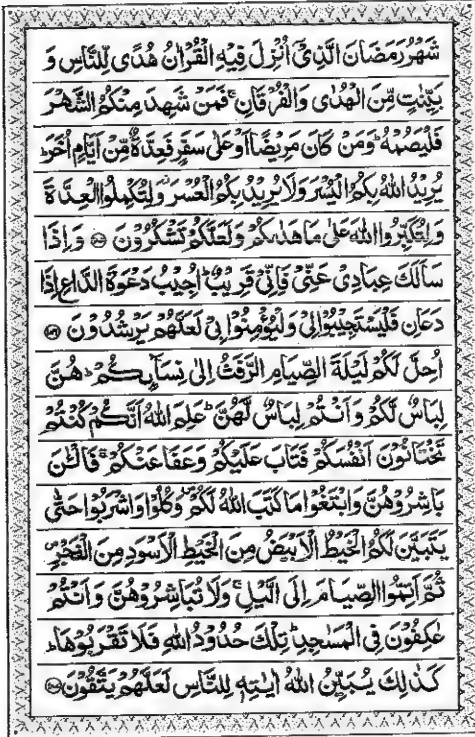 شَهْرُ رَمَضَانَ الَّذِيْٓ اُنْزِلَ فِيْهِ الْقُرْاٰنُ هُدًى لِّلنَّاسِ وَ
بَيِّنٰتٍ مِّنَ الْهُدٰى وَالْفُرْقَانِ ۚ فَمَنْ شَهِدَ مِنْكُمُ الشَّهْرَ
فَلْيَصُمْهُ ؕ وَمَنْ كَانَ مَرِيْضًا اَوْ عَلٰى سَفَرٍ فَعِدَّةٌ مِّنْ اَيَّامٍ اُخَرَ ؕ
يُرِيْدُ اللّٰهُ بِكُمُ الْيُسْرَ وَلَا يُرِيْدُ بِكُمُ الْعُسْرَ ۫ وَلِتُكْمِلُوا الْعِدَّةَ
وَلِتُكَبِّرُوا اللّٰهَ عَلٰى مَا هَدٰىكُمْ وَلَعَلَّكُمْ تَشْكُرُوْنَ ﴿۱۸۵﴾ وَاِذَا
سَاَلَكَ عِبَادِيْ عَنِّيْ فَاِنِّيْ قَرِيْبٌ ؕ اُجِيْبُ دَعْوَةَ الدَّاعِ اِذَا
دَعَانِ فَلْيَسْتَجِيْبُوْا لِيْ وَلْيُؤْمِنُوْا بِيْ لَعَلَّهُمْ يَرْشُدُوْنَ ﴿۱۸۶﴾
اُحِلَّ لَكُمْ لَيْلَةَ الصِّيَامِ الرَّفَثُ اِلٰى نِسَآىِٕكُمْ ؕ هُنَّ
لِبَاسٌ لَّكُمْ وَاَنْتُمْ لِبَاسٌ لَّهُنَّ ؕ عَلِمَ اللّٰهُ اَنَّكُمْ كُنْتُمْ
تَخْتَانُوْنَ اَنْفُسَكُمْ فَتَابَ عَلَيْكُمْ وَعَفَا عَنْكُمْ ۚ فَالْـٰٔنَ
بَاشِرُوْهُنَّ وَابْتَغُوْا مَا كَتَبَ اللّٰهُ لَكُمْ ۪ وَكُلُوْا وَاشْرَبُوْا حَتّٰى
يَتَبَيَّنَ لَكُمُ الْخَيْطُ الْاَبْيَضُ مِنَ الْخَيْطِ الْاَسْوَدِ مِنَ الْفَجْرِ ۪
ثُمَّ اَتِمُّوا الصِّيَامَ اِلَى الَّيْلِ ۚ وَلَا تُبَاشِرُوْهُنَّ وَاَنْتُمْ
عٰكِفُوْنَ فِى الْمَسٰجِدِ ؕ تِلْكَ حُدُوْدُ اللّٰهِ فَلَا تَقْرَبُوْهَا ؕ
كَذٰلِكَ يُبَيِّنُ اللّٰهُ اٰيٰتِهٖ لِلنَّاسِ لَعَلَّهُمْ يَتَّقُوْنَ ﴿۱۸۷﴾